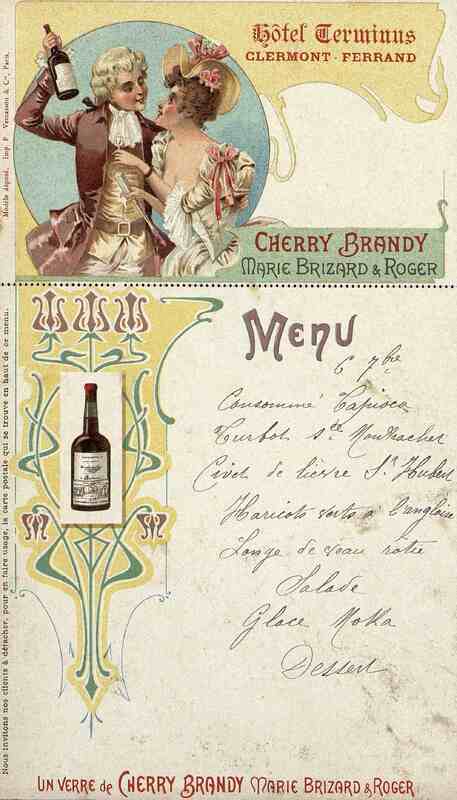 Hôtel Terminus
CLERMONT - FERRAND
CHERRY BRANDY
MARIE BRIZARD & ROGER
Modèle déposé. Imp. F. Vercasson & Cie, Paris.
MENU
6 7bre
Consommé Tapioca
Turbot sce Montrachet
Civet de lièvre St Hubert
Haricots verts à l'anglaise
Longe de veau rotie
Salade
Glace Moka
Dessert
Nous invitons nos clients à détacher, pour en faire usage, la carte postale qui se trouve en haut de ce menu.
UN VERRE de CHERRY BRANDY MARIE BRIZARD & ROGER